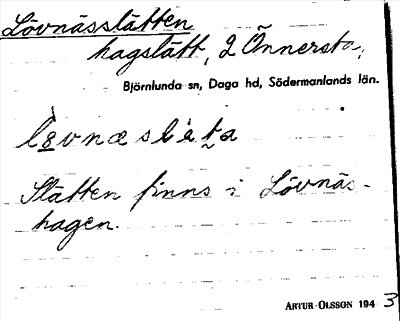 Lövnässlätten
hagslått, 2 Önnersta,
Björnlunda sn, Daga hd, Södermanlands län.
Slåtten finns i Lövnäs-
hagen.
ARTUR OLSSON 1943